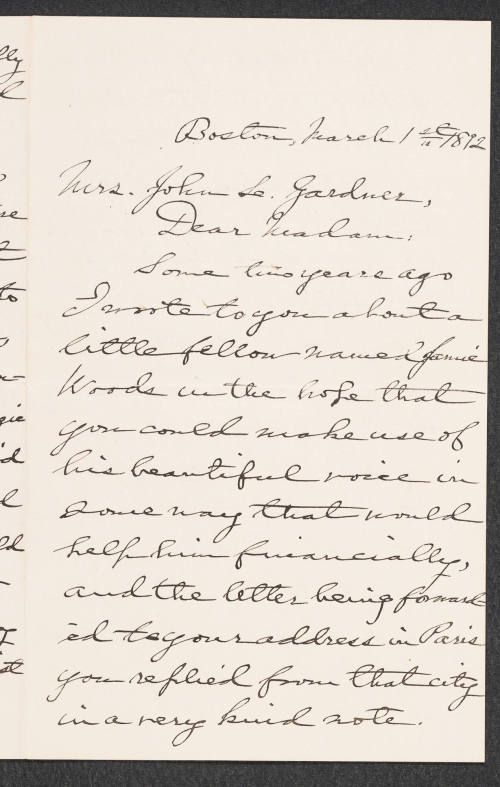 Boston, March 1st 1892
Mrs. John L. Gardner,
Dear Madam:
Some two years ago
I wrote to you about a
little fellow named Jamie
Woods in the hope that
you could make use of
his beautiful voice in
some way that would
help him financially,
and the letter being forward-
ed to your address in Paris
you replied from that city
in a very kind note.